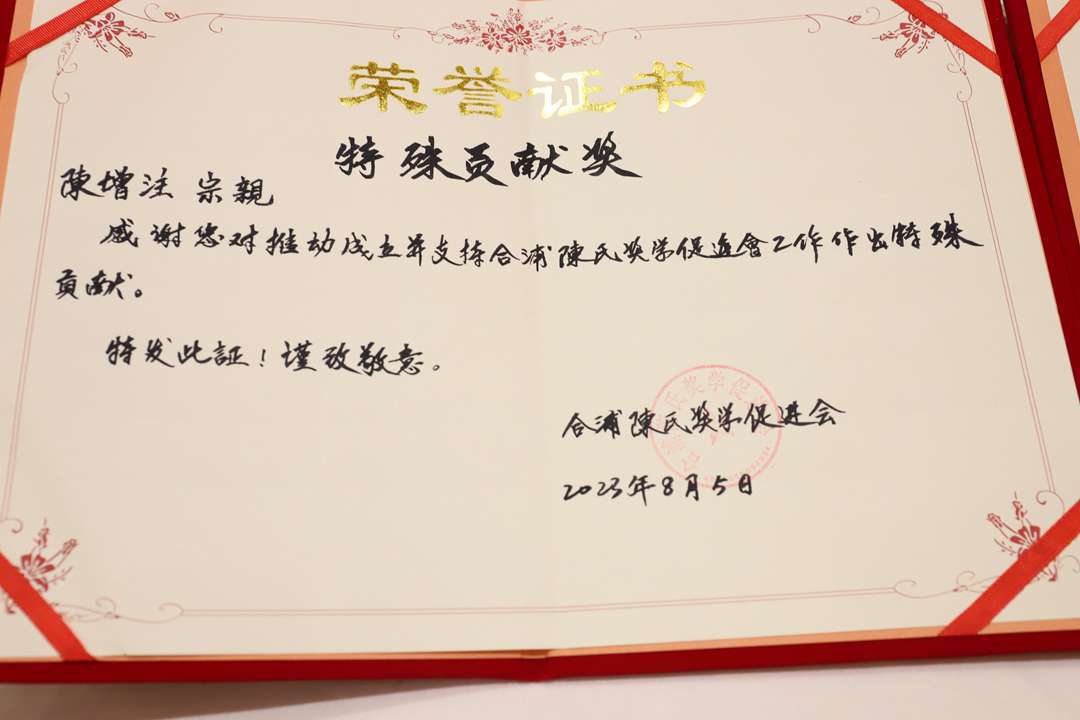 荣誉证书
特殊贡献奖
陳增注 宗親
感谢您对推动成立并支持合浦陳氏奖学促進會工作作出特殊
贡献。
特发此証！谨致敬意。
合浦陳氏奖学促进会
2023年8月5日